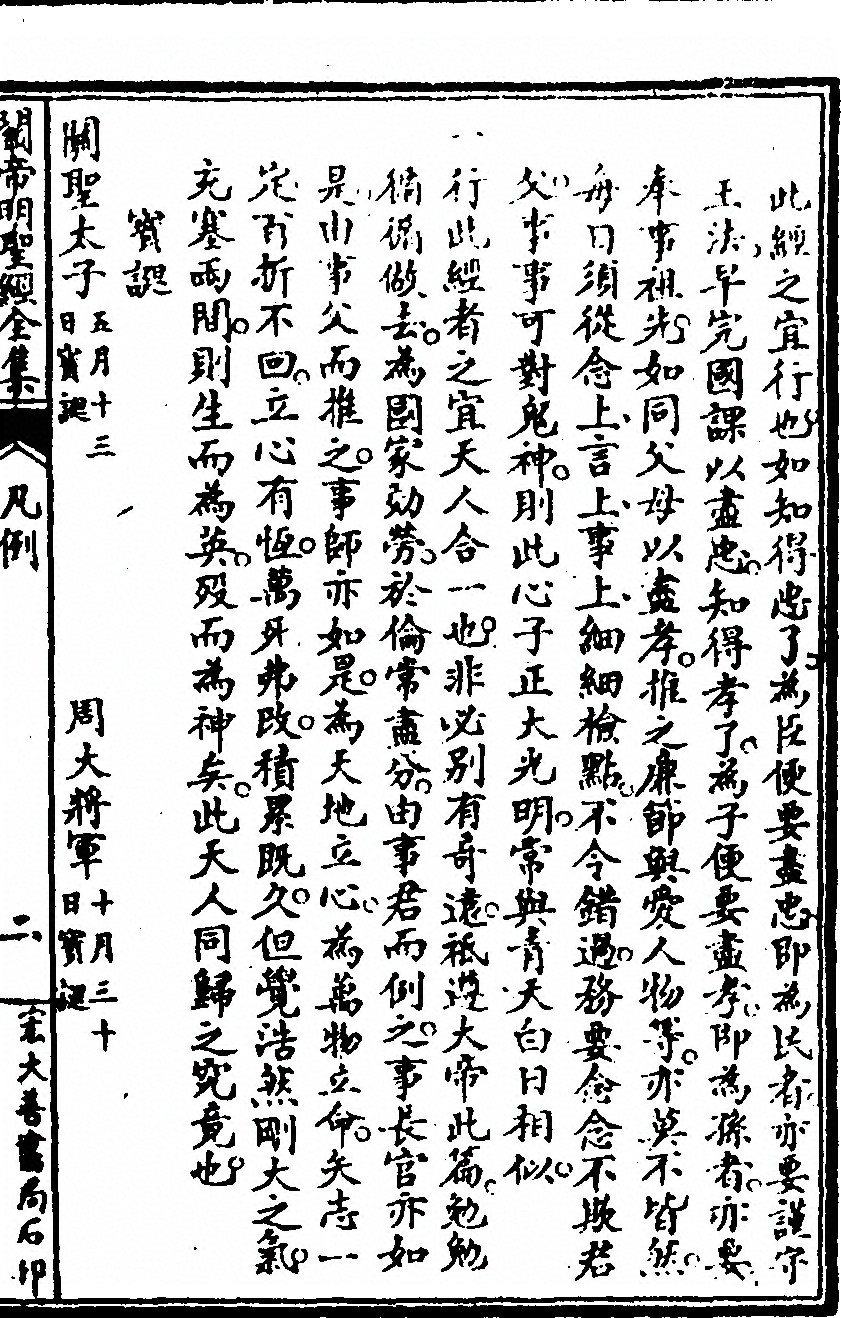 此經之宜行也。如知得忠了。為臣便要盡忠。即為民者。亦要謹守
王法。早完國課以盡忠。知得孝了。為子便要盡孝。即為孫者。亦要
奉事祖先。如同父母以盡孝。推之廉節與愛人物等。亦莫不皆然。
每日須從念上、言上、事上、細細檢點。不令錯過。務要念念不欺君
父。事事可對鬼神。則此心子正大光明。常與青天白日相似。
一行此經者之宜天人合一也。非必別有奇遠。祇遵大帝此篇。勉勉
循循做去。為國家効勞。於倫常盡分。由事君而例之。事長官亦如
是。由事父而推之。事師亦如是。為天地立心。為萬物立命。矢志一
定。百折不回。立心有恆。萬死弗改。積累既久。但覺浩然剛大之氣。
充塞兩間。則生而為英。歿而為神矣。此天人同歸之究竟也。
寶誕
關聖太子 五月十三日寶誕 周大將軍 十月三十日寶誕
關帝明聖經全集 凡例 二 宏大善書局石印